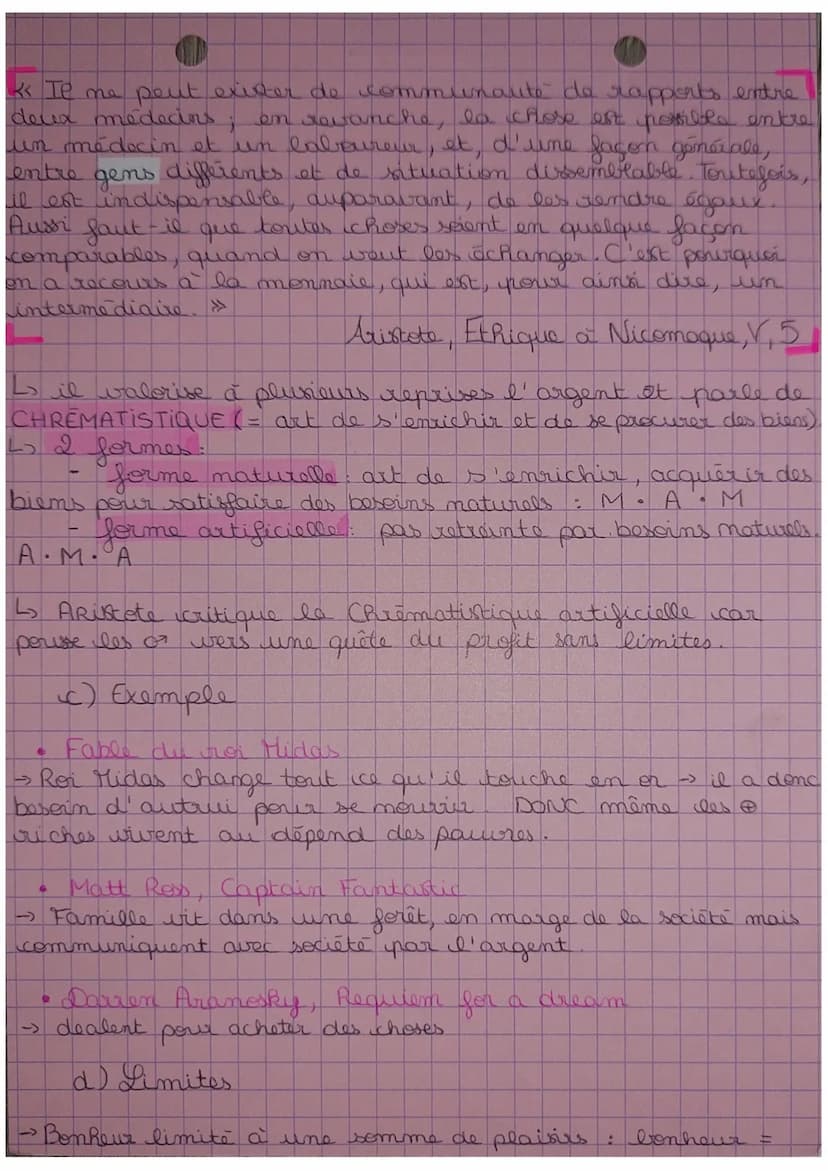 « Il ne peut exister de communauté de rapports entre
deux médecins ; en revanche, la chose est possible entre
un médecin et un laboureur, et, d'une façon générale,
entre gens différents et de situation dissemblable. Toutefois,
il est indispensable, auparavant, de les rendre égaux.
Aussi faut-il que toutes choses soient en quelque façon
comparables, quand on veut les échanger. C'est pourquoi
on a recours à la monnaie, qui est, pour ainsi dire, un
intermédiaire. »
Aristote, Ethique à Nicomaque, V, 5
↳ il valorise à plusieurs reprises l'argent et parle de
CHRÉMATISTIQUE (= art de s'enrichir et de se procurer des biens)
↳ 2 formes :
- forme naturelle : art de s'enrichir, acquérir des
biens pour satisfaire des besoins naturels : M • A • M
- forme artificielle : pas restreinte par besoins naturels.
A • M • A
↳ Aristote critique la Chrématistique artificielle car
pousse les ♂ vers une quête du profit sans limites.
c) Exemple
• Fable du roi Midas
→ Roi Midas change tout ce qu'il touche en or → il a donc
besoin d'autrui pour se nourrir DONC même les ⊕
riches vivent au dépend des pauvres.
• Matt Ross, Captain Fantastic
→ Famille vit dans une forêt, en marge de la société mais
communiquent avec société par l'argent.
• Darren Aranosky, Requiem for a dream
→ dealent pour acheter des choses
d) Limites
→ Bonheur limité à une somme de plaisirs : bonheur =